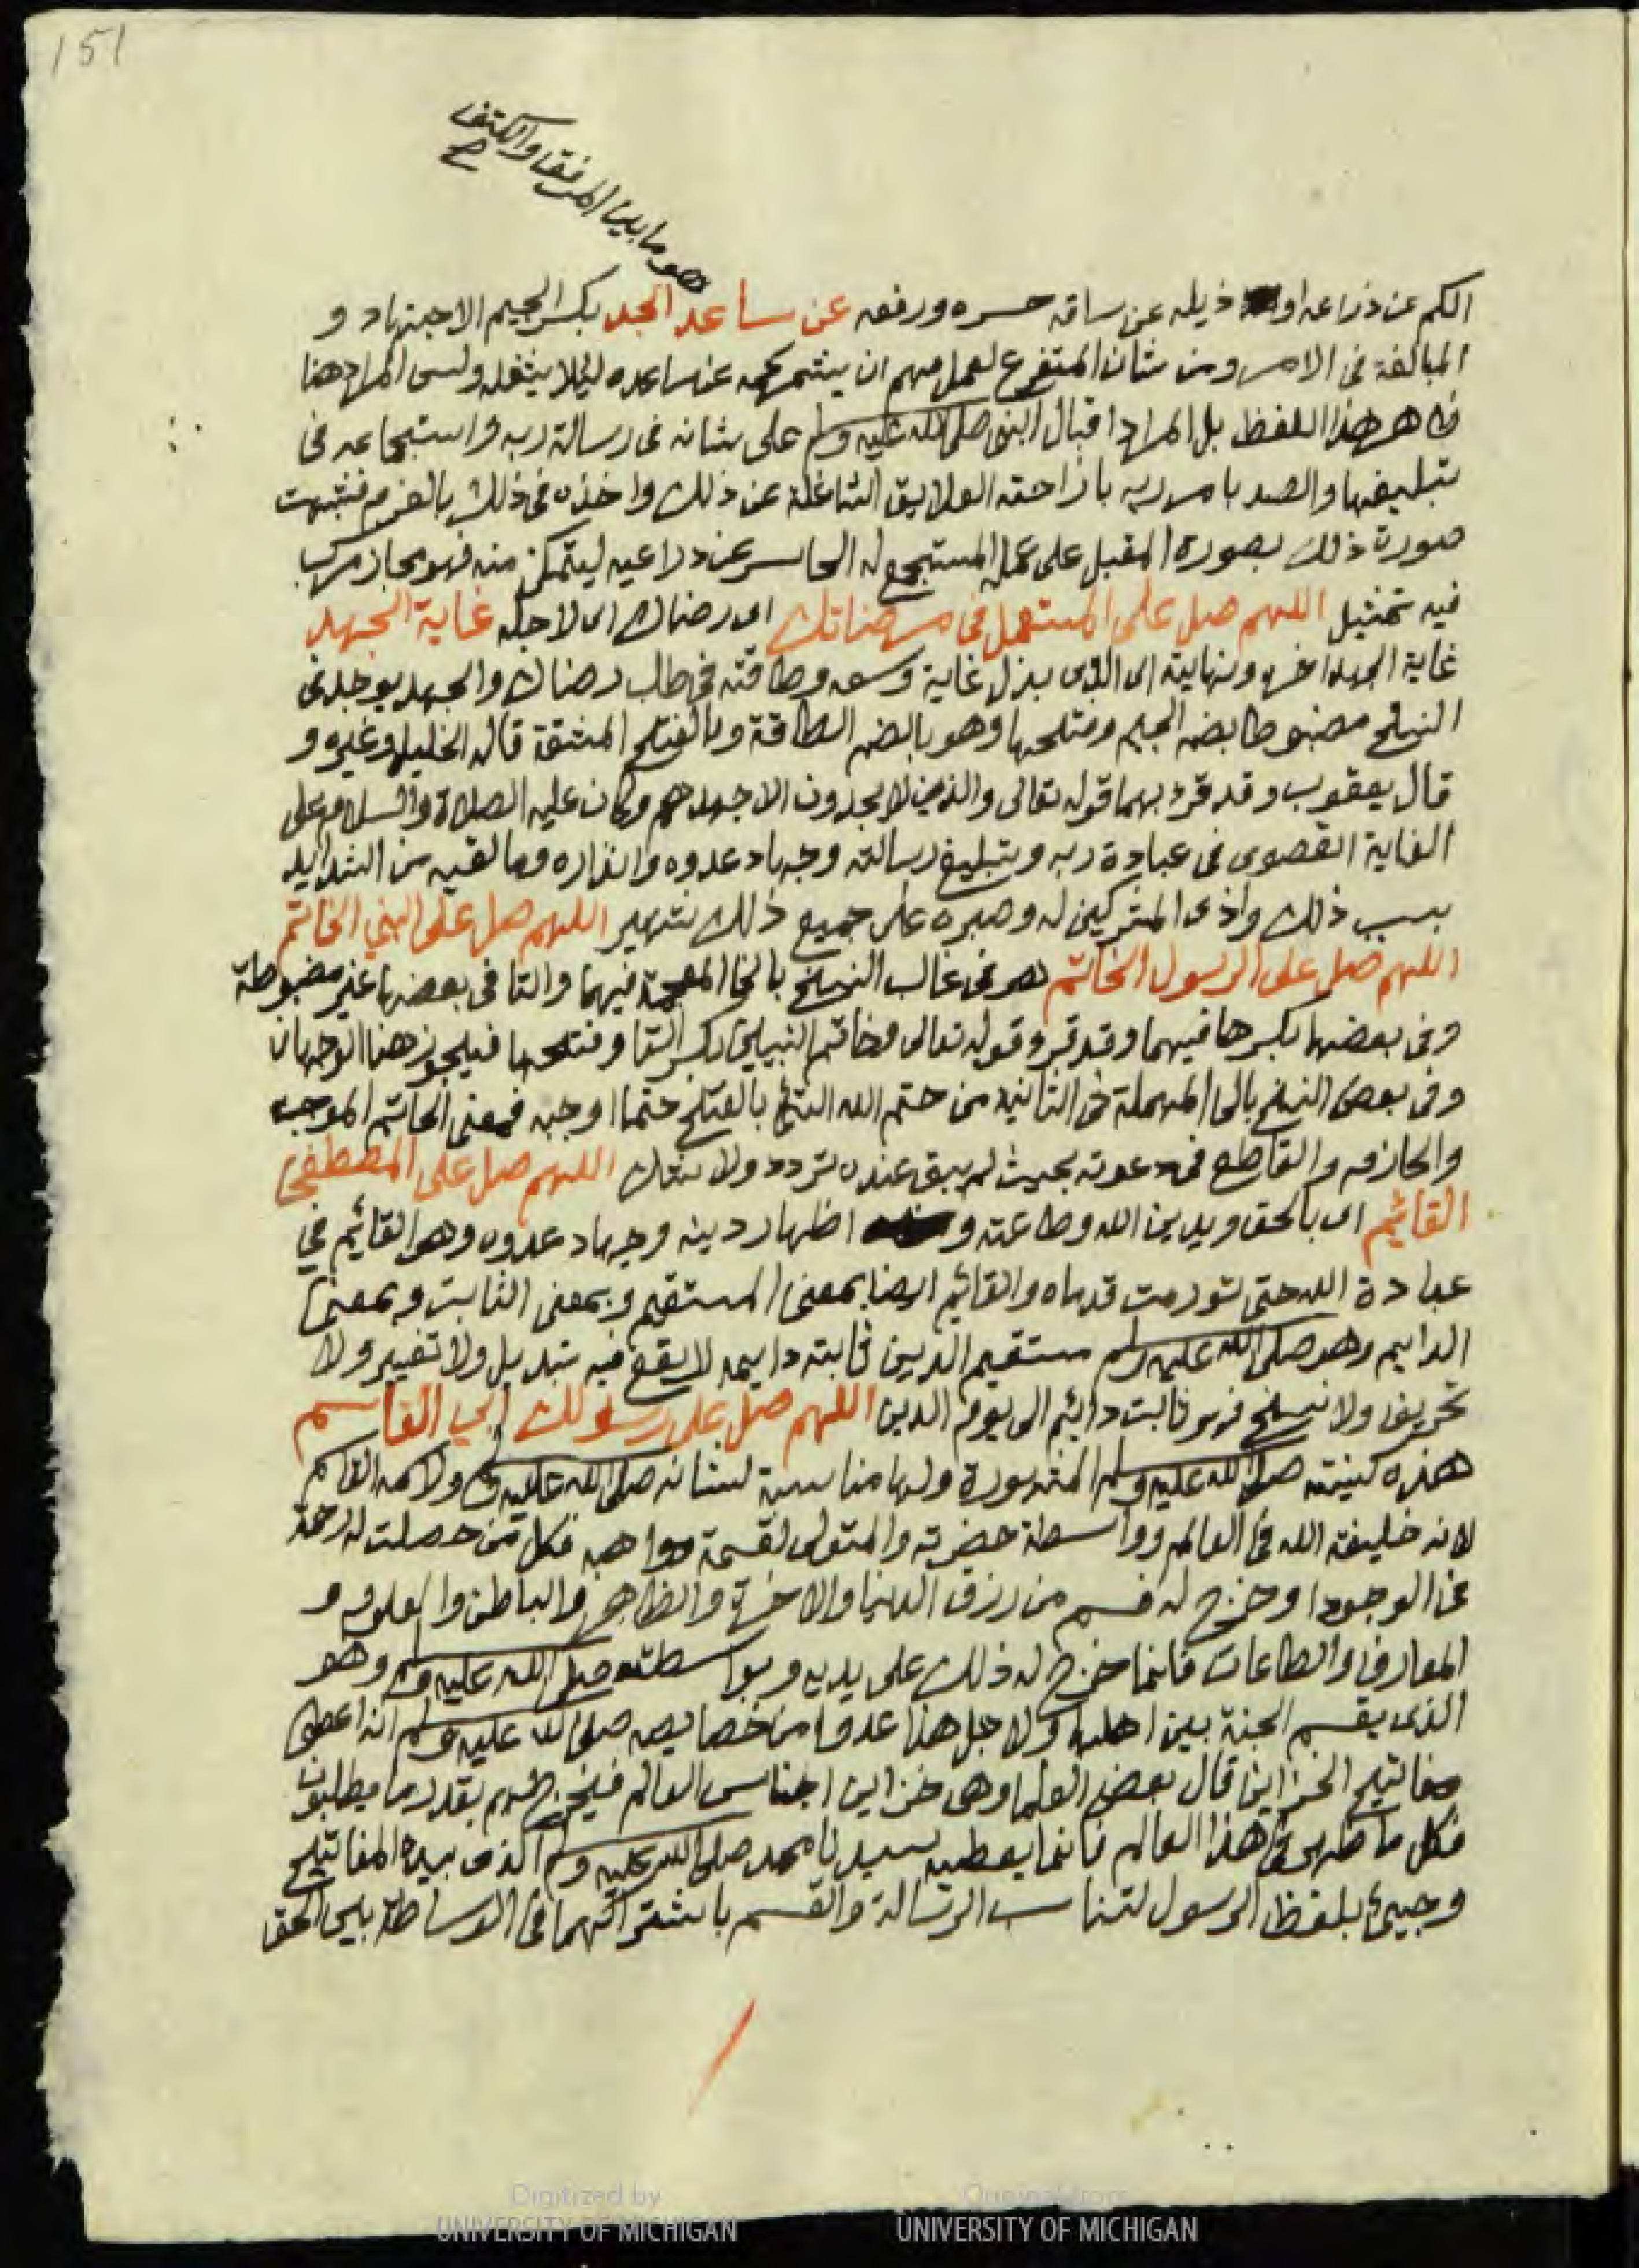 151
هو ما بين المرفق والكتف
الكم عن ذراعه او ذيله عن ساقه حسره ورفعه عن ساعد الجد بكسر الجيم الاجتهاد و
المبالغة فى الامر ومن شان المتفرع لعمل مهم ان يشمر كمه عن ساعده ليلا يشغله وليس المراد هنا
ظاهر هذا اللفظ بل المراد اقبال النبى صلى الله عليه وسلم على شانه فى رسالة ربه واستجماعه فى
تبليغها والصد بامر ربه بازاحة العلايق الشاغلة عن ذلك واخذه فى ذلك بالعزم فشبهت
صورت ذلك بصورة المقبل على عمله المستجمع له الحاسر عن ذراعيه ليتمكن منه فهو مجاز مركب
فيه تمثيل اللهم صل على المستعمل فى مرضاتك اى رضاك اى لاجله غاية الجهد
غاية الجهد اخره ونهايته اى الذى بذل غاية وسعه وطاقته فى طلب رضاك والجهد يوجد فى
النسخ مضبوطا بضم الجيم وفتحها وهو بالضم الطاقة وبالفتح المشقة قاله الخليل وغيره و
قال يعقوب وقد قرء بهما قوله تعالى والذين لا يجدون الا جهدهم وكان عليه الصلاة والسلام على
الغاية القصوى فى عبادة ربه وتبليغ رسالته وجهاد عدوه وانذاره وما لقيه من الشدايد
بسبب ذلك واذى المشركين له وصبره على جميع ذلك شهير اللهم صل على النبي الخاتم
اللهم صل على الرسول الخاتم هو فى غالب النسخ بالخا المعجمة فيهما والتا فى بعضها غير مضبوطة
وفى بعضها بكسرها فيهما وقد قرء قوله تعالى وخاتم النبيين بكسر التا وفتحها فيجوز هنا الوجهان
وفى بعض النسخ بالحا المهملة فى الثانية من حتم الله الشئ بالفتح حتما اوجبه فمعنى الحاتم الموجب
والجازم والقاطع فى دعوته بحيث لم يبق عنده تردد ولا شك اللهم صل على المصطفى
القائيم اى بالحق وبدين الله وطاعته و اظهار دينه وجهاد عدوه وهو القائيم في
عبادة الله حتى تورمت قدماه والقائم ايضا بمعنى المستقيم وبمعنى الثابت وبمعنى
الدايم وهو صلى الله عليه وسلم مستقيم الدين ثابته دايمه لا يقع فيه تبديل ولا تغيير ولا
تحريف ولا نسخ فهو ثابت دايم الى يوم الدين اللهم صل على رسولك ابي القاسم
هذه كنيته صلى الله عليه وسلم المشهورة ولها مناسبة لشانه صلى الله عليه وسلم ولاسمه القاسم
لانه خليفة الله فى العالم وواسطة حضرته والمتولى لقسمة مواهبه فكل من حصلت له رحمة
فى الوجود او خرج له قسم من رزق الدنيا والاخرة والظاهر والباطن والعلوم و
المعارف والطاعات فانما خرج له ذلك على يديه وبواسطته صلى الله عليه وسلم وهو
الذى يقسم الجنة بين اهلها ولاجل هذا عدوا من خصايصه صلى الله عليه وسلم انه اعطى
مفاتيح الخزاين قال بعض العلما وهى خزاين اجناس العالم فيخرج لهم بقدر ما يطلبون
فكل ما ظهر فى هذا العالم فانما يعطيه سيدنا محمد صلى الله عليه وسلم الذى بيده المفاتيح
وجيئ بلفظ الرسول لتناسب الرسالة والقسم باشتراكهما فى الوساطة بين الحق
Digitized by
UNIVERSITY OF MICHIGAN
Original from
UNIVERSITY OF MICHIGAN